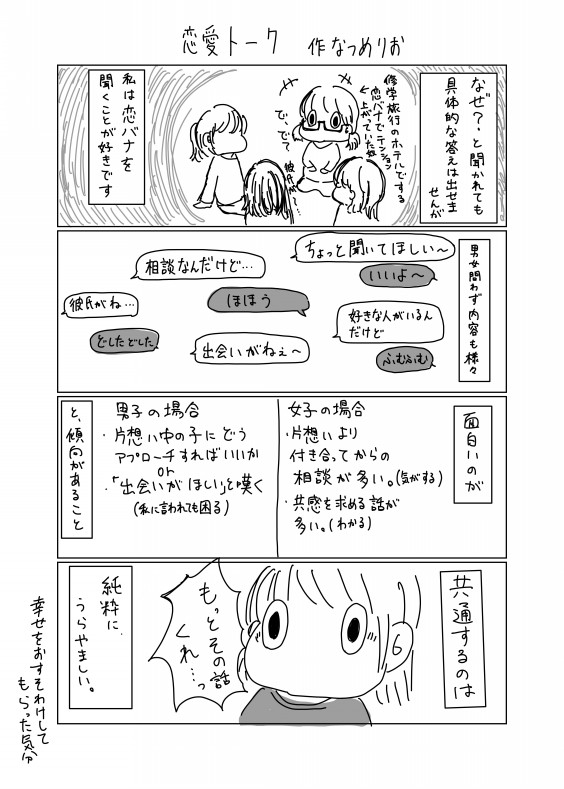 恋愛トーク 作なつめりお
なぜ?と聞かれても
具体的な答えは出せま
せんが
修学旅行のホテルでする
恋バナでテンション
上がっていた奴
で、でで
彼氏が…
私は恋バナを
聞くことが好きです
男女問わず内容も様々
ちょっと聞いてほしい〜
いいよ〜
相談なんだけど…
ほほう
彼氏がね…
どしたどした
好きな人がいるん
だけど
ふむふむ
出会いがねぇ〜
面白いのが
女子の場合
・片想いより
付き合ってからの
相談が多い。(気がする)
・共感を求める話が
多い。(わかる)
男子の場合
・片想い中の子にどう
アプローチすればいいか
or
・「出会いがほしい」と嘆く
(私に言われても困る)
と、傾向があること
共通するのは
もっとその話
くれ…っ
純粋に
うらやましい。
幸せをおすそわけして
もらった気分